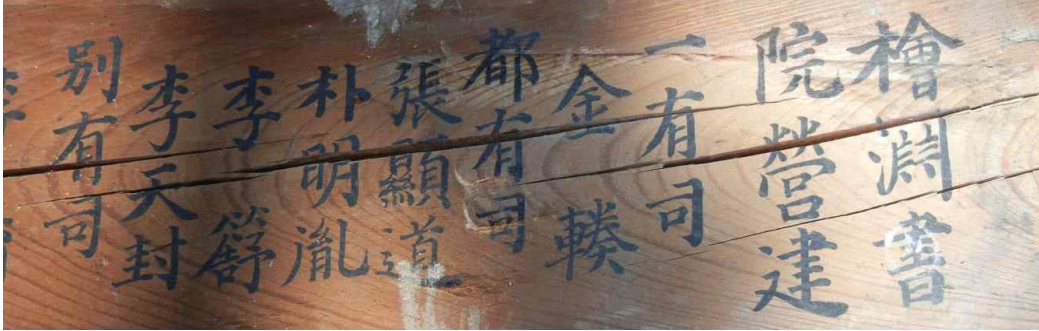 檜淵書
院營建
一有司
金 輳
都有司
張顯道
朴明胤
李
李天封
別有司